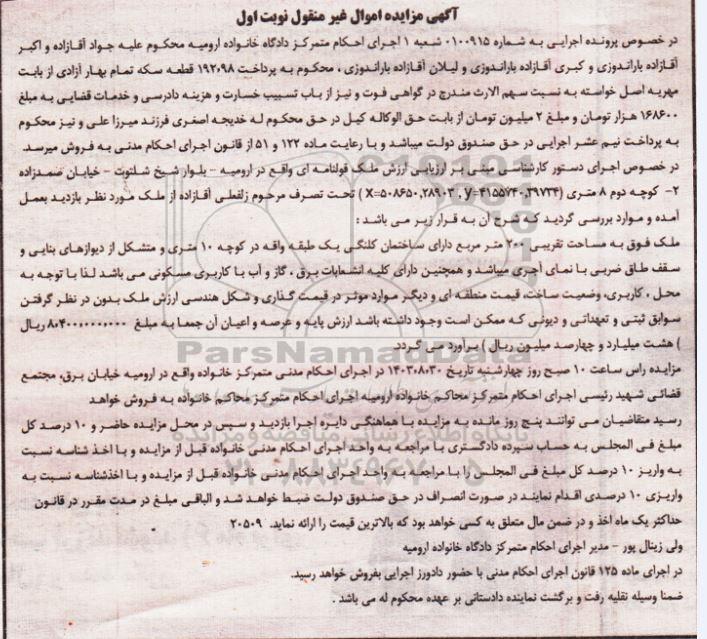 آگهی مزایده اموال غیر منقول نوبت اول
در خصوص پرونده اجرایی به شماره ۰۱۰۰۹۱۵ شعبه ۱ اجرای احکام متمرکز دادگاه خانواده ارومیه محکوم علیه جواد آقازاده و اکبر
آقازاده باراندوزی و کبری آقازاده باراندوزی و لیلان آقازاده باراندوزی ، محکوم به پرداخت ۱۹۲،۰۹۸ قطعه سکه تمام بهار آزادی از بابت
مهریه اصل خواسته به نسبت سهم الارث مندرج در گواهی فوت و نیز از باب تسبیب خسارت و هزینه دادرسی و خدمات قضایی به مبلغ
۱۶۸۶۰۰ هزار تومان و مبلغ ۲ میلیون تومان از بابت حق الوکاله کیل در حق محکوم له خدیجه اصغری فرزند میرزا علی و نیز محکوم
به پرداخت نیم عشر اجرایی در حق صندوق دولت میباشد و با رعایت ماده ۱۲۲ و ۵۱ از قانون اجرای احکام مدنی به فروش میرسد.
در خصوص اجرای دستور کارشناسی مبنی بر ارزیابی ارزش ملک قولنامه ای واقع در ارومیه – بلوار شیخ شلتوت – خیابان صمدزاده
۲- کوچه دوم ۸ متری (X=۵۰۸۶۵۰,۲۸۹۰۳ . y=۴۱۵۵۷۴۰,۳۹۷۳۴ ) تحت تصرف مرحوم زلفعلی آقازاده از ملک مورد نظر بازدید بعمل
آمده و موارد بررسی گردید که شرح آن به قرار زیر می باشد :
ملک فوق به مساحت تقریبی ۲۰۰ متر مربع دارای ساختمان کلنگی یک طبقه واقه در کوچه ۱۰ متری و متشکل از دیوازهای بنایی و
سقف طاق ضربی با نمای آجری میباشد و همچنین دارای کلیه انشعابات برق ، گاز و آب با کاربری مسکونی می باشد لذا با توجه به
محل ، کاربری، وضعیت ساخت، قیمت منطقه ای و دیگر موارد موثر در قیمت گذاری و شکل هندسی ارزش ملک بدون در نظر گرفتن
سوابق ثبتی و تعهداتی و دیونی که ممکن است وجود داشته باشد ارزش پایه و عرصه و اعیان آن جمعا به مبلغ ۸،۴۰۰،۰۰۰،۰۰۰ ریال
) هشت میلیارد و چهارصد میلیون ریال ) برآورد می گردد.
مزایده راس ساعت ۱۰ صبح روز چهارشنبه تاریخ ۱۴۰۳،۰۸،۳۰ در اجرای احکام مدنی متمرکز خانواده واقع در ارومیه خیابان برق، مجتمع
قضائی شهید رئیسی اجرای احکام متمرکز محاکم خانواده ارومیه اجرای احکام متمرکز محاکم خانواده به فروش خواهد
رسید متقاضیان می توانند پنج روز مانده به مزایده با هماهنگی دایره اجرا بازدید و سپس در محل مزایده حاضر و ۱۰ درصد کل
مبلغ فی المجلس به حساب سپرده دادگستری با مراجعه به واحد اجرای احکام مدنی خانواده قبل از مزایده و با اخذ شناسه نسبت
به واریز ۱۰ درصد کل مبلغ فی المجلس را با مراجعه به واحد اجرای احکام مدنی خانواده قبل از مزایده و با اخذشناسه نسبت به
واریزی ۱۰ درصدی اقدام نمایند در صورت انصراف در حق صندوق دولت ضبط خواهد شد و الباقی مبلغ در مدت مقرر در قانون
حداکثر یک ماه اخذ و در ضمن مال متعلق به کسی خواهد بود که بالاترین قیمت را ارائه نماید. ۲۰۵۰۹
ولی زینال پور – مدیر اجرای احکام متمرکز دادگاه خانواده ارومیه
در اجرای ماده ۱۲۵ قانون اجرای احکام مدنی با حضور دادورز اجرایی بفروش خواهد رسید.
ضمنا وسیله نقلیه رفت و برگشت نماینده دادستانی بر عهده محکوم له می باشد .
ParsNamadData
پایگاه اطلاع رسانی مناقصه و مزایده